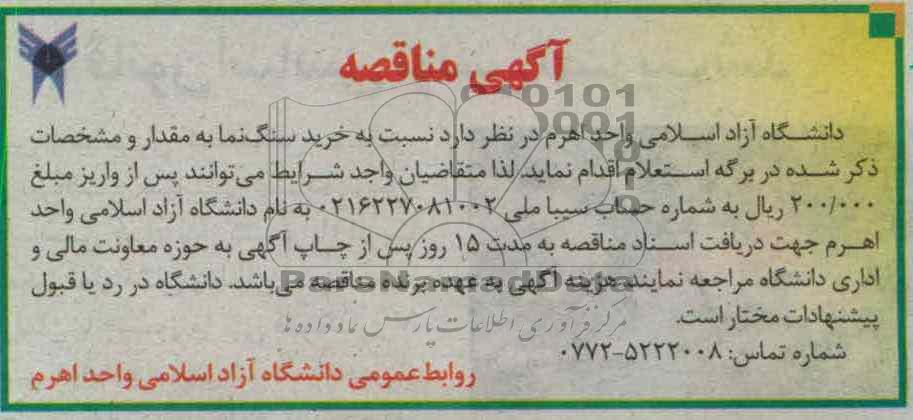 آگهی مناقصه
دانشگاه آزاد اسلامی واحد اهرم در نظر دارد نسبت به خرید سنگ‌نما به مقدار و مشخصات
ذکر شده در برگه استعلام اقدام نماید. لذا متقاضیان واجد شرایط می‌توانند پس از واریز مبلغ
۲۰۰/۰۰۰ ریال به شماره حساب سیبا ملی ۰۲۱۶۲۲۷۰۸۱۰۰۲ به نام دانشگاه آزاد اسلامی واحد
اهرم جهت دریافت اسناد مناقصه به مدت ۱۵ روز پس از چاپ آگهی به حوزه معاونت مالی و
اداری دانشگاه مراجعه نمایند. هزینه آگهی به عهده برنده مناقصه می‌باشد. دانشگاه در رد یا قبول
پیشنهادات مختار است.
شماره تماس: ۵۲۲۲۰۰۸-۰۷۷۲
روابط عمومی دانشگاه آزاد اسلامی واحد اهرم
ParsNamadData
مرکز فرآوری اطلاعات پارس نماد داده ها